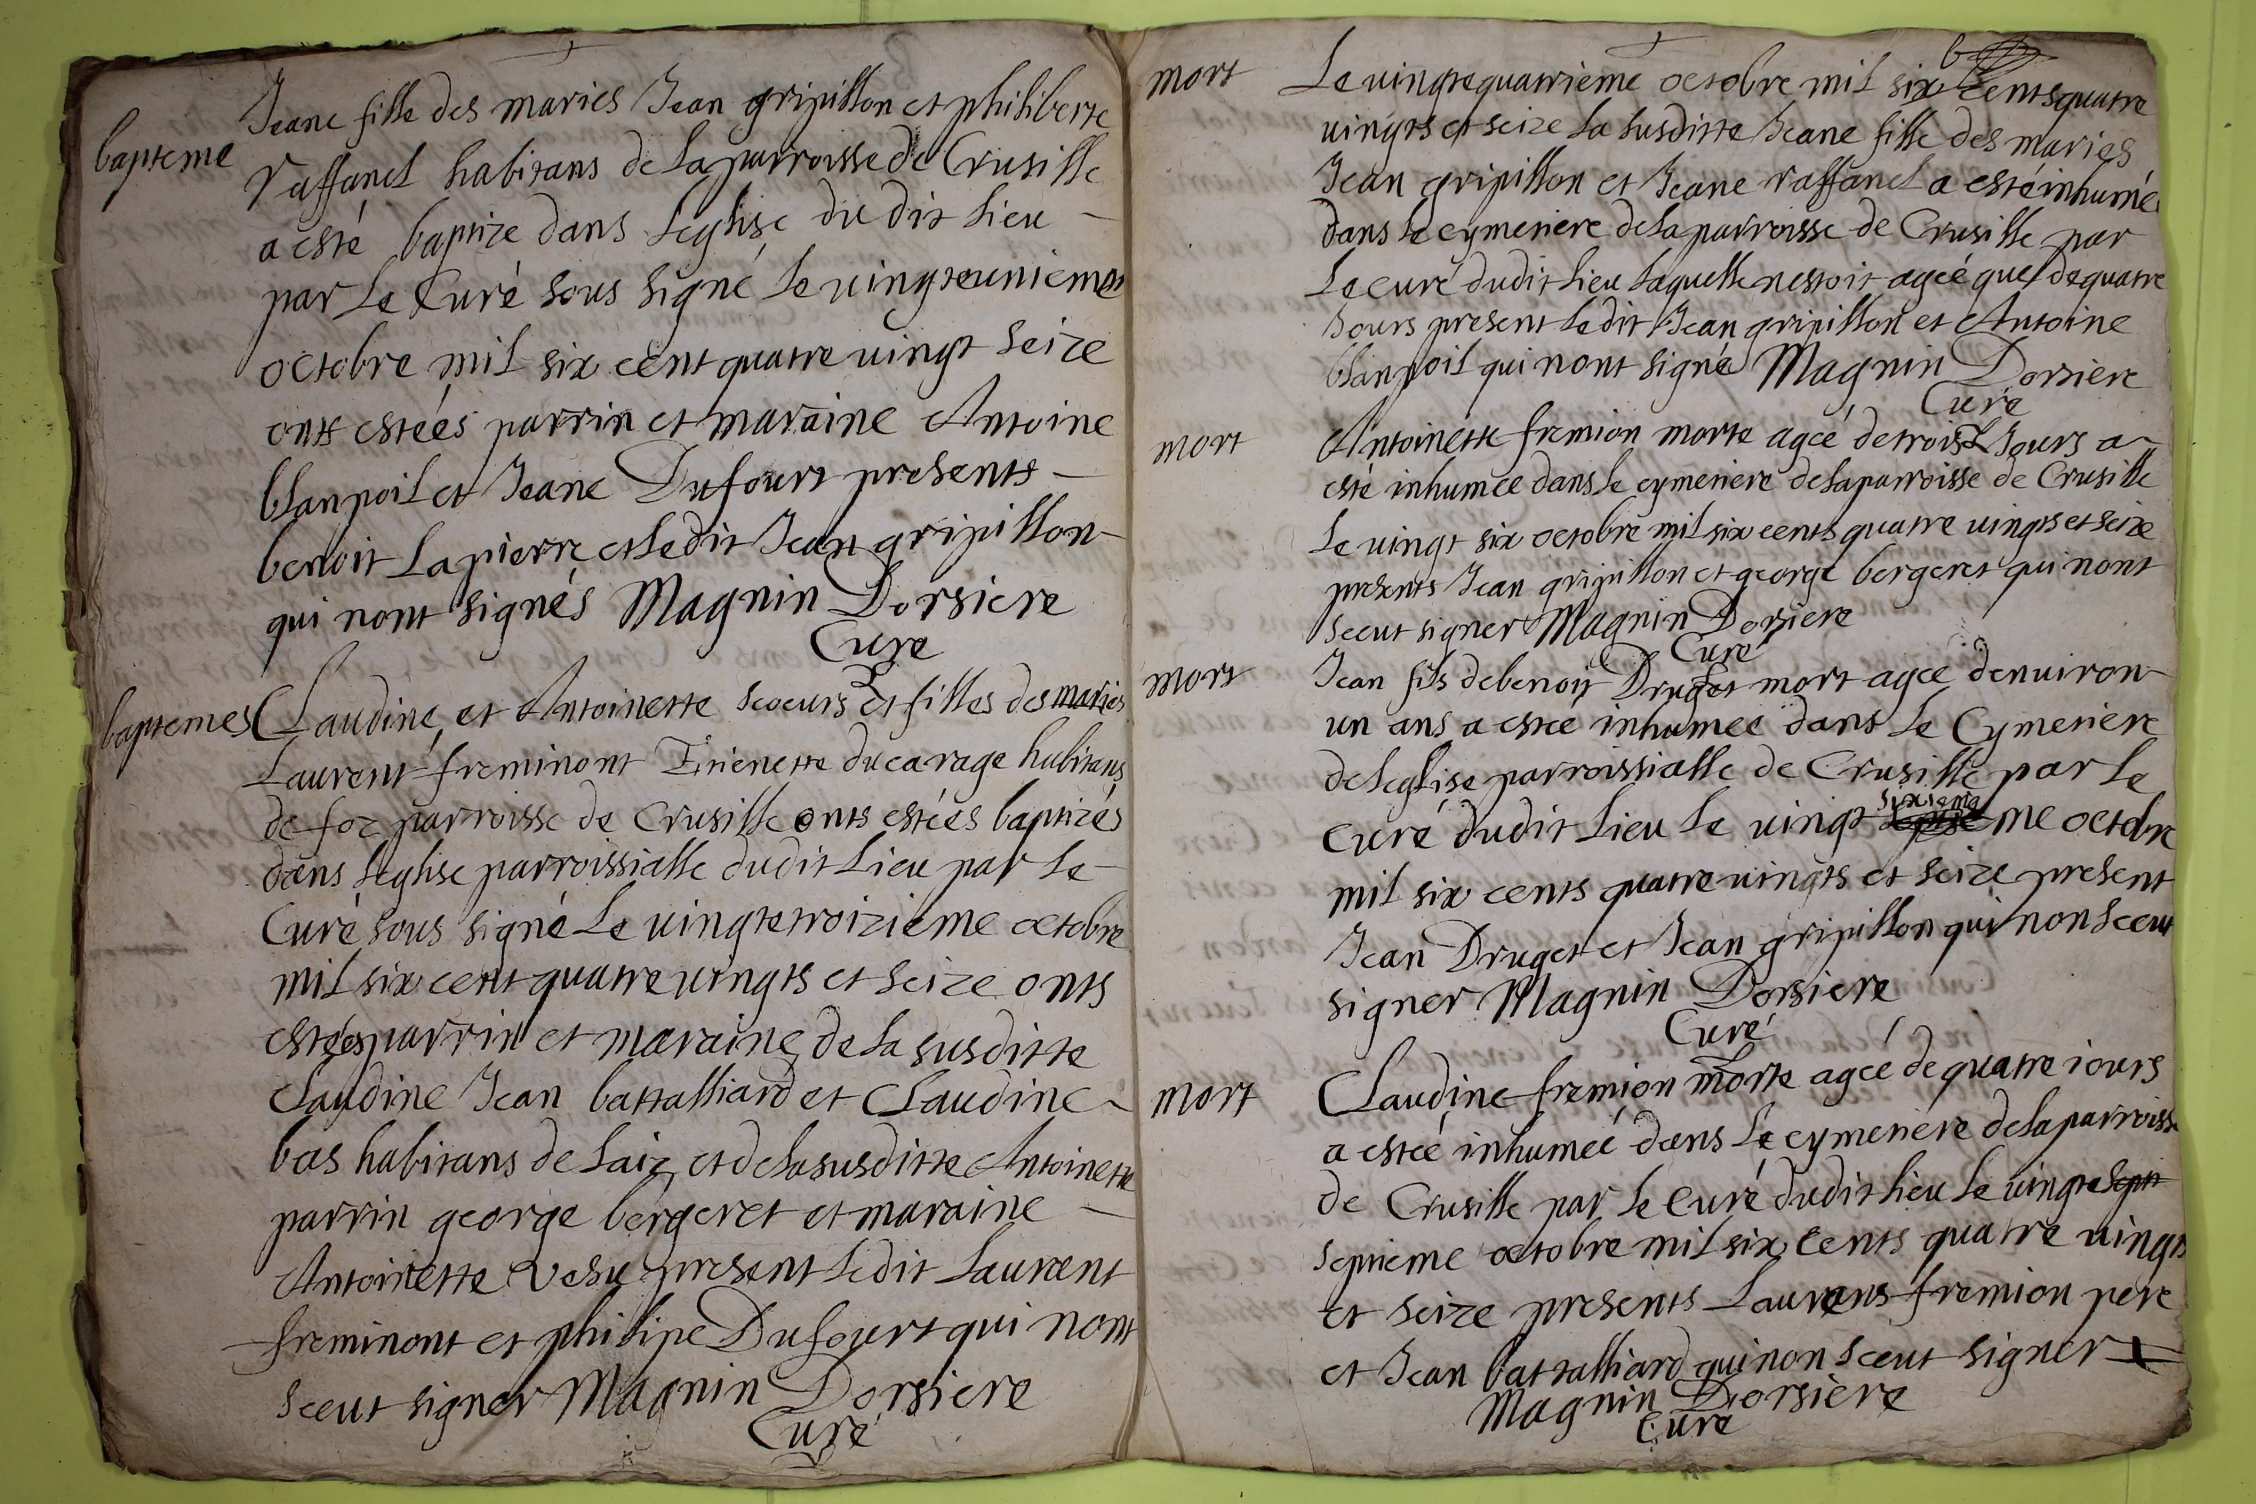 bapteme
Jeane fille des maries Jean gripillon et philiberte
raffanel habitans de la parroisse de Crusille
a esté baptize dans leglise du dit lieu
par le Curé sous signé le vingteunieme
octobre mil six cent quatre vingt seize
onts estéés parrin et maraine Antoine
blanpoil et Jeane Dufourt presents
benoit lapierre et ledit Jean gripillon
qui nont signés Magnin Dorsiere
Cure
baptemes
Claudine et Antoinette scoeurs et filles des maries
Laurent freminont Etienette ducarage habitans
de foz parroisse de Crusille onts estéés baptizés
dans leglise parroissialle dudit lieu par le
Curé sous signé le vingtetroizieme octobre
mil six cent quatre vingts et seize onts
estéés parrin et maraine de la susditte
Claudine Jean battalliard et Claudine
bas habitans de laiz et de la susditte Antoinette
parrin george bergeret et maraine
Antoinette vesu present ledit Laurent
freminont et philipe Dufourt qui nont
sceut signer Magnin Dorsiere
Curé
mort
Le vingtequatrieme octobre mil six cents quatre
vingts et seize la susditte Jeane fille des maries
Jean gripillon et Jeane raffanel a esté inhumée
dans le cymetiere de la parroisse de Crusille par
le curé dudit lieu laquelle nestoit ageé que de quatre
Jours present ledit Jean gripillon et Antoine
blanpoil qui nont signé Magnin Dorsiere
Curé
mort
Antoinette fremion morte ageé de trois Jours a
esté inhumée dans le cymetiere de la parroisse de Crusille
le vingt six octobre mil six cents quatre vingts et seize
presents Jean gripillon et george bergeret qui nont
sceut signer Magnin Dorsiere
Curé
mort
Jean fils de benoit Druget mort agee denuiron
un ans a estée inhumee dans le Cymetiere
de leglise parroissialle de Crusille par le
Curé dudit lieu le vingt sixieme octobre
mil six cents quatre vingts et seize present
Jean Druget et Jean gripillon qui non sceut
signer Magnin Dorsiere
Curé
mort
Claudine fremion morte ageé de quatre iours
a esteé inhumeé dans le cymetiere de la parroisse
de Crusille par le Curé dudit lieu le vingte sept
septieme octobre mil six cents quatre vingts
et seize presents Laurens fremion pere
et Jean battalliard qui non sceut signer
Magnin Dorsiere
Cure